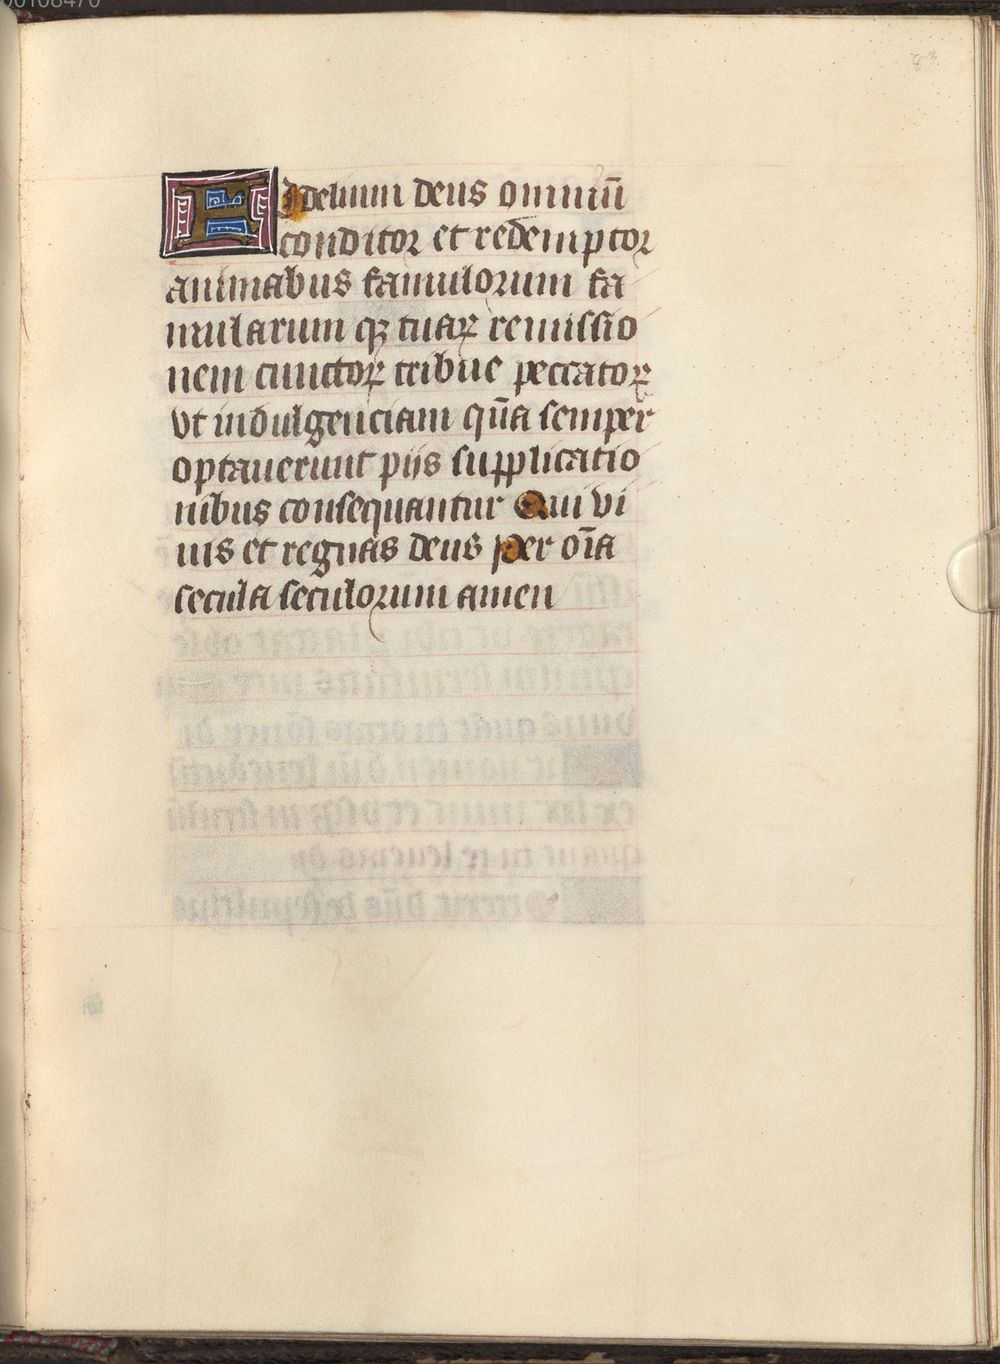 00108470
83
Fidelium deus omniū
conditor et redemptor
animabus famulorum fa
mularum qꝫ tuaꝝ remissio
nem cunctoꝝ tribue peccatoꝝ
vt indulgenciam qūa semper
optauerunt piis supplicatio
nibus consequantur Qui vi
uis et regnas deus Per oīa
secula seculorum amen